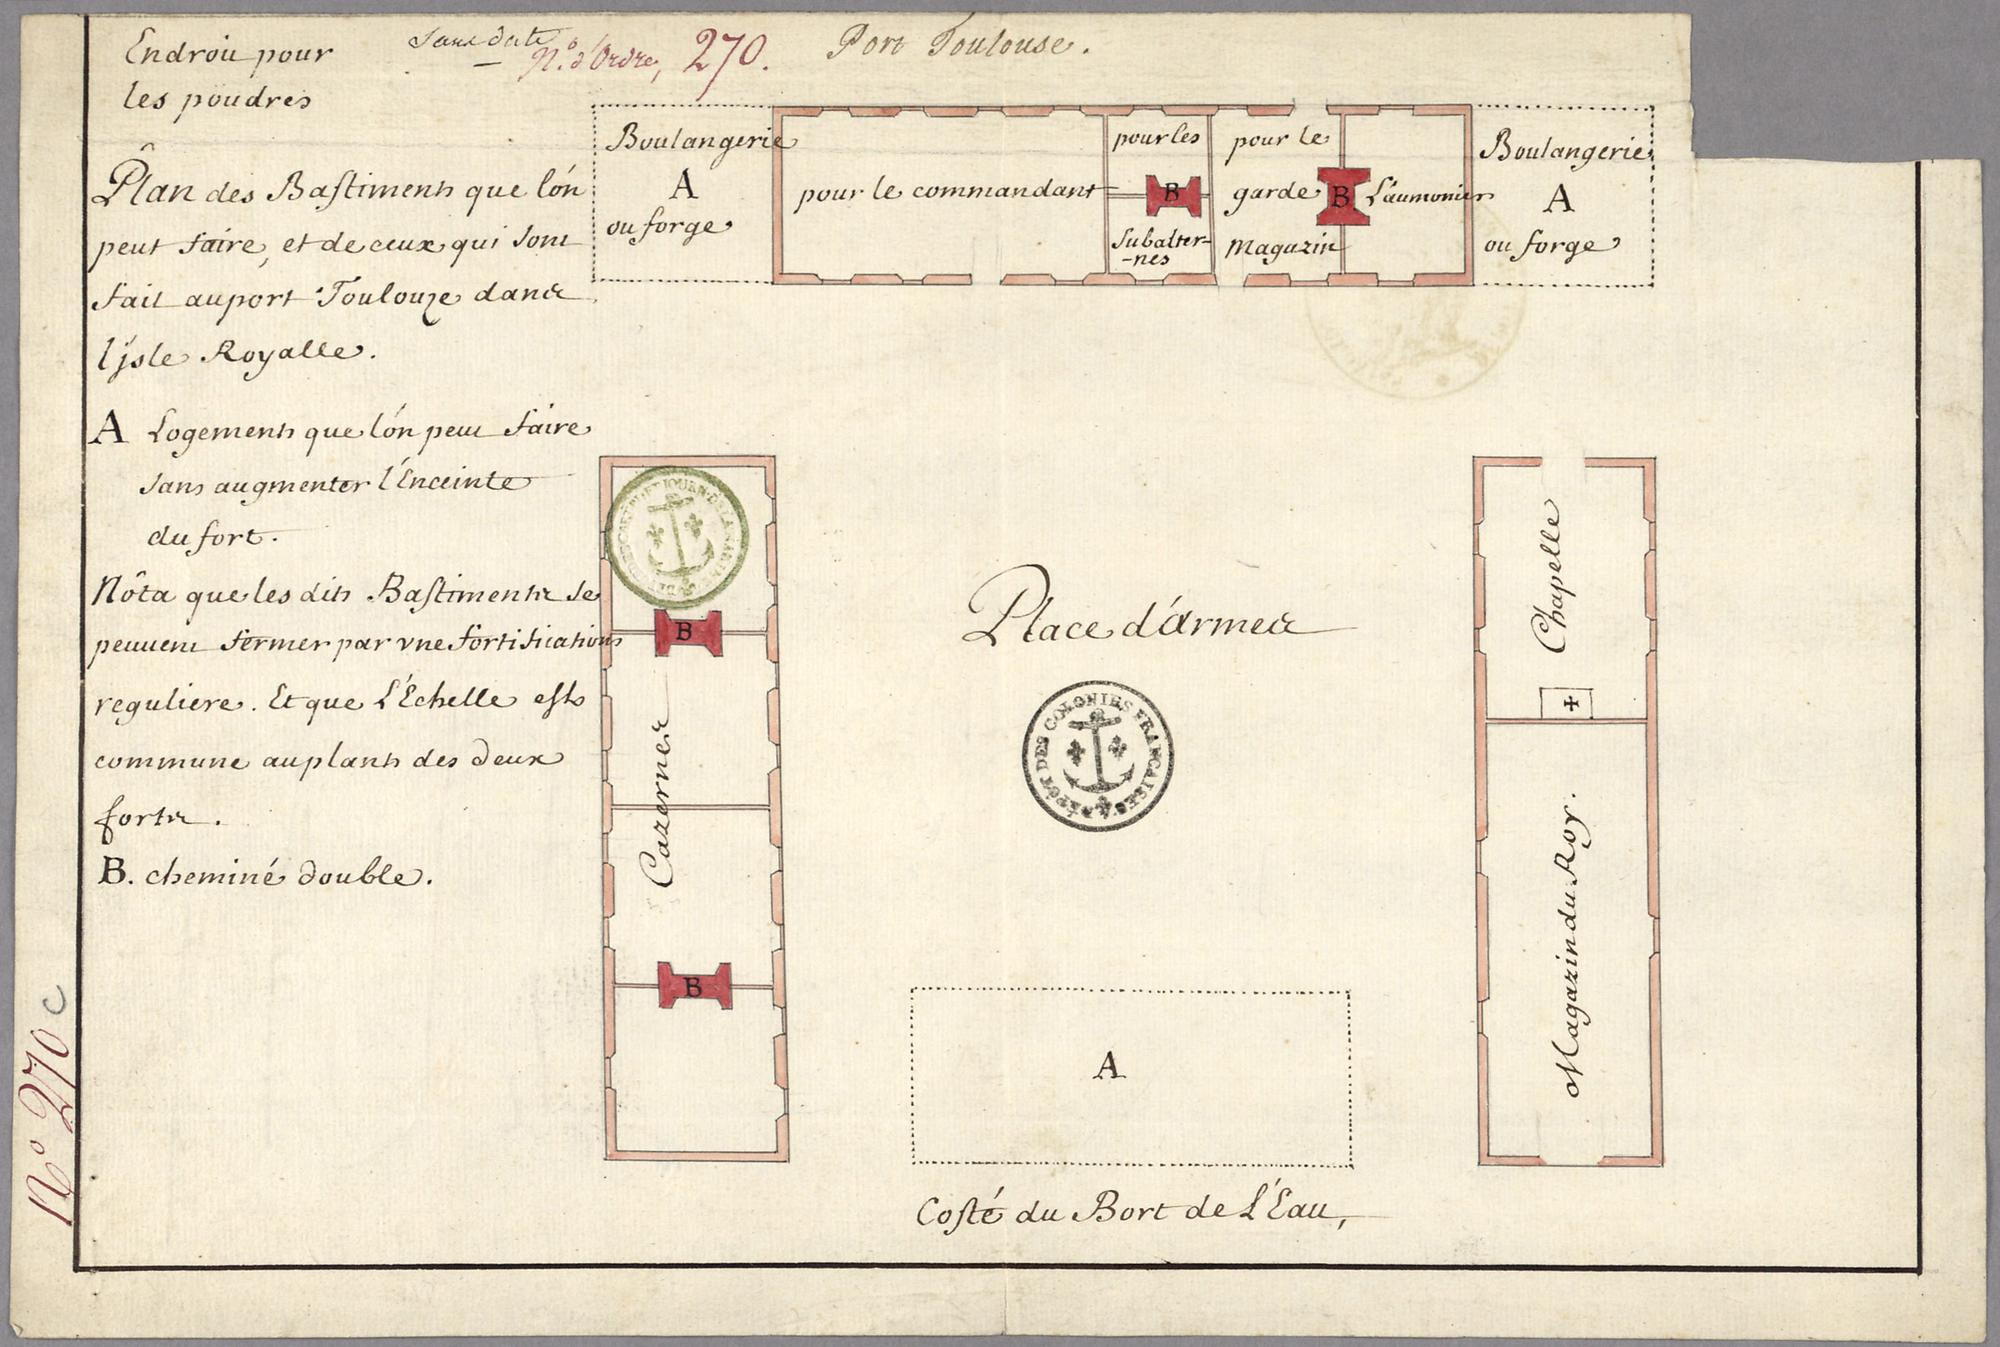 Endroit pour
les poudres
Sans date
N.º d'Ordre, 270.
Port Toulouse.
Plan des Bastiments que l'on
peut faire, et de ceux qui sont
fait au port Toulouze dans
l'jsle Royalle.
A Logements que l'on peut faire
sans augmenter l'Enceinte
du fort.
Nôta que les dits Bastiments se
peuuent fermer par vne fortifications
reguliere. Et que L'Echelle est
commune au plants des deux
forts.
B. cheminé double.
Boulangerie
A
ou forge
pour le commandant
pour les
B
subalter-
-nes
pour le
garde
magazin
B
L'aumonier
Boulangerie
A
ou forge
B
Cazernes
B
Place d'armes
DÉPÔT DES COLONIES FRANÇAISES
Chapelle
Magazin du Roy.
A
Costé du Bort de L'Eau,
Nº 270 c